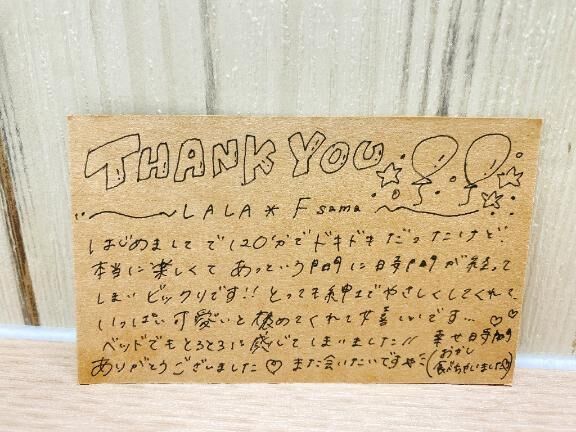 THANK YOU
LALA * F sama
はじめましてで120分でドキドキだったけど
本当に楽しくてあっという間に時間が経って
しまいビックリです!! とっても紳士でやさしくしてくれて、
いっぱい可愛いと褒めてくれて嬉しいです…♡♡
ベッドでもとろとろに感じてしまいました!! 幸せ時間
ありがとうございました♡ また会いたいですや (おかし
食べちゃいました♡)